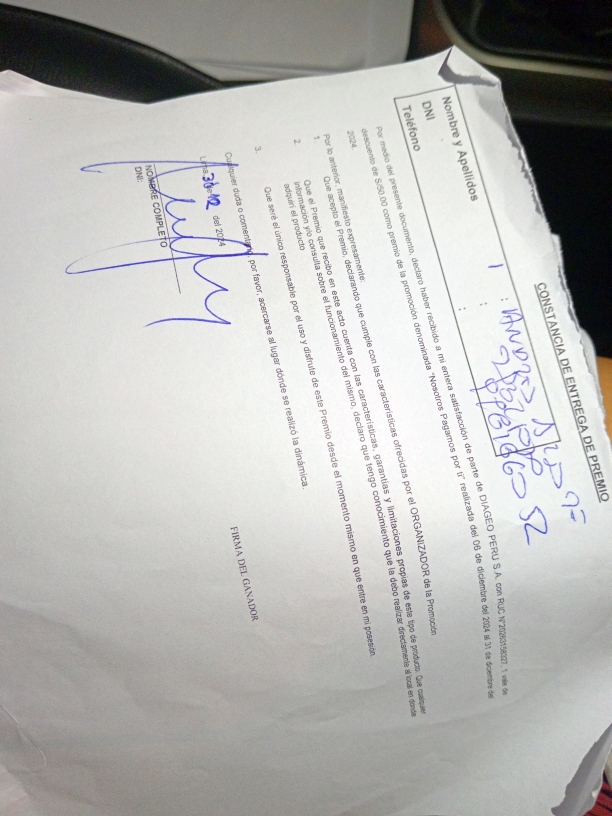 CONSTANCIA DE ENTREGA DE PREMIO
Nombre y Apellidos :
DNI :
Teléfono :
Por medio del presente documento, declaro haber recibido a mi entera satisfacción de parte de DIAGEO PERU S.A. con RUC N°20263158327, 1 vale de
descuento de S/50.00 como premio de la promoción denominada "Nosotros Pagamos por ti" realizada del 06 de diciembre del 2024 al 31 de diciembre del
2024.
Por lo anterior, manifiesto expresamente:
1. Que acepto el Premio, declarando que cumple con las características ofrecidas por el ORGANIZADOR de la Promoción.
2. Que el Premio que recibo en este acto cuenta con las características, garantías y limitaciones propias de este tipo de producto. Que cualquier
información y/o consulta sobre el funcionamiento del mismo, declaro que tengo conocimiento que la debo realizar directamente al local en donde
adquirí el producto
3. Que seré el único responsable por el uso y disfrute de este Premio desde el momento mismo en que entre en mi posesión.
Cualquier duda o comentario, por favor, acercarse al lugar dónde se realizó la dinámica.
Lima, 30 de 12 del 2024
FIRMA DEL GANADOR
NOMBRE COMPLETO
DNI: